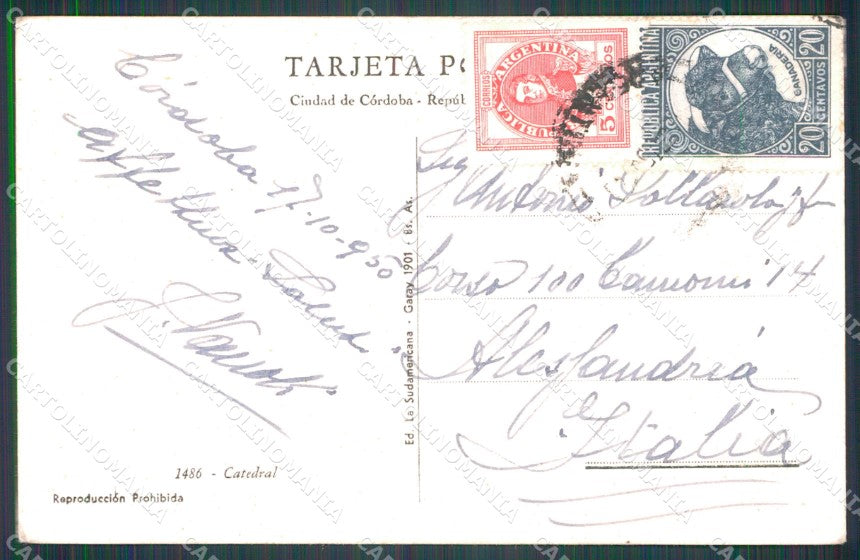 TARJETA PO
Ciudad de Córdoba - Repúb
CORREOS
ARGENTINA
REPUBLICA
5 CENTAVOS
REPÚBLICA ARGENTINA
GANADERIA
20 20
CENTAVOS
Córdoba 17-10-950
Affettuosi Saluti
Sig Antonio
Corso 100 Cannoni 14
Alessandria
Italia
Ed. La Sudamericana - Garay 1901 - Bs. As.
1486 - Catedral
Reproducción Prohibida
CARTOLINOMANIA